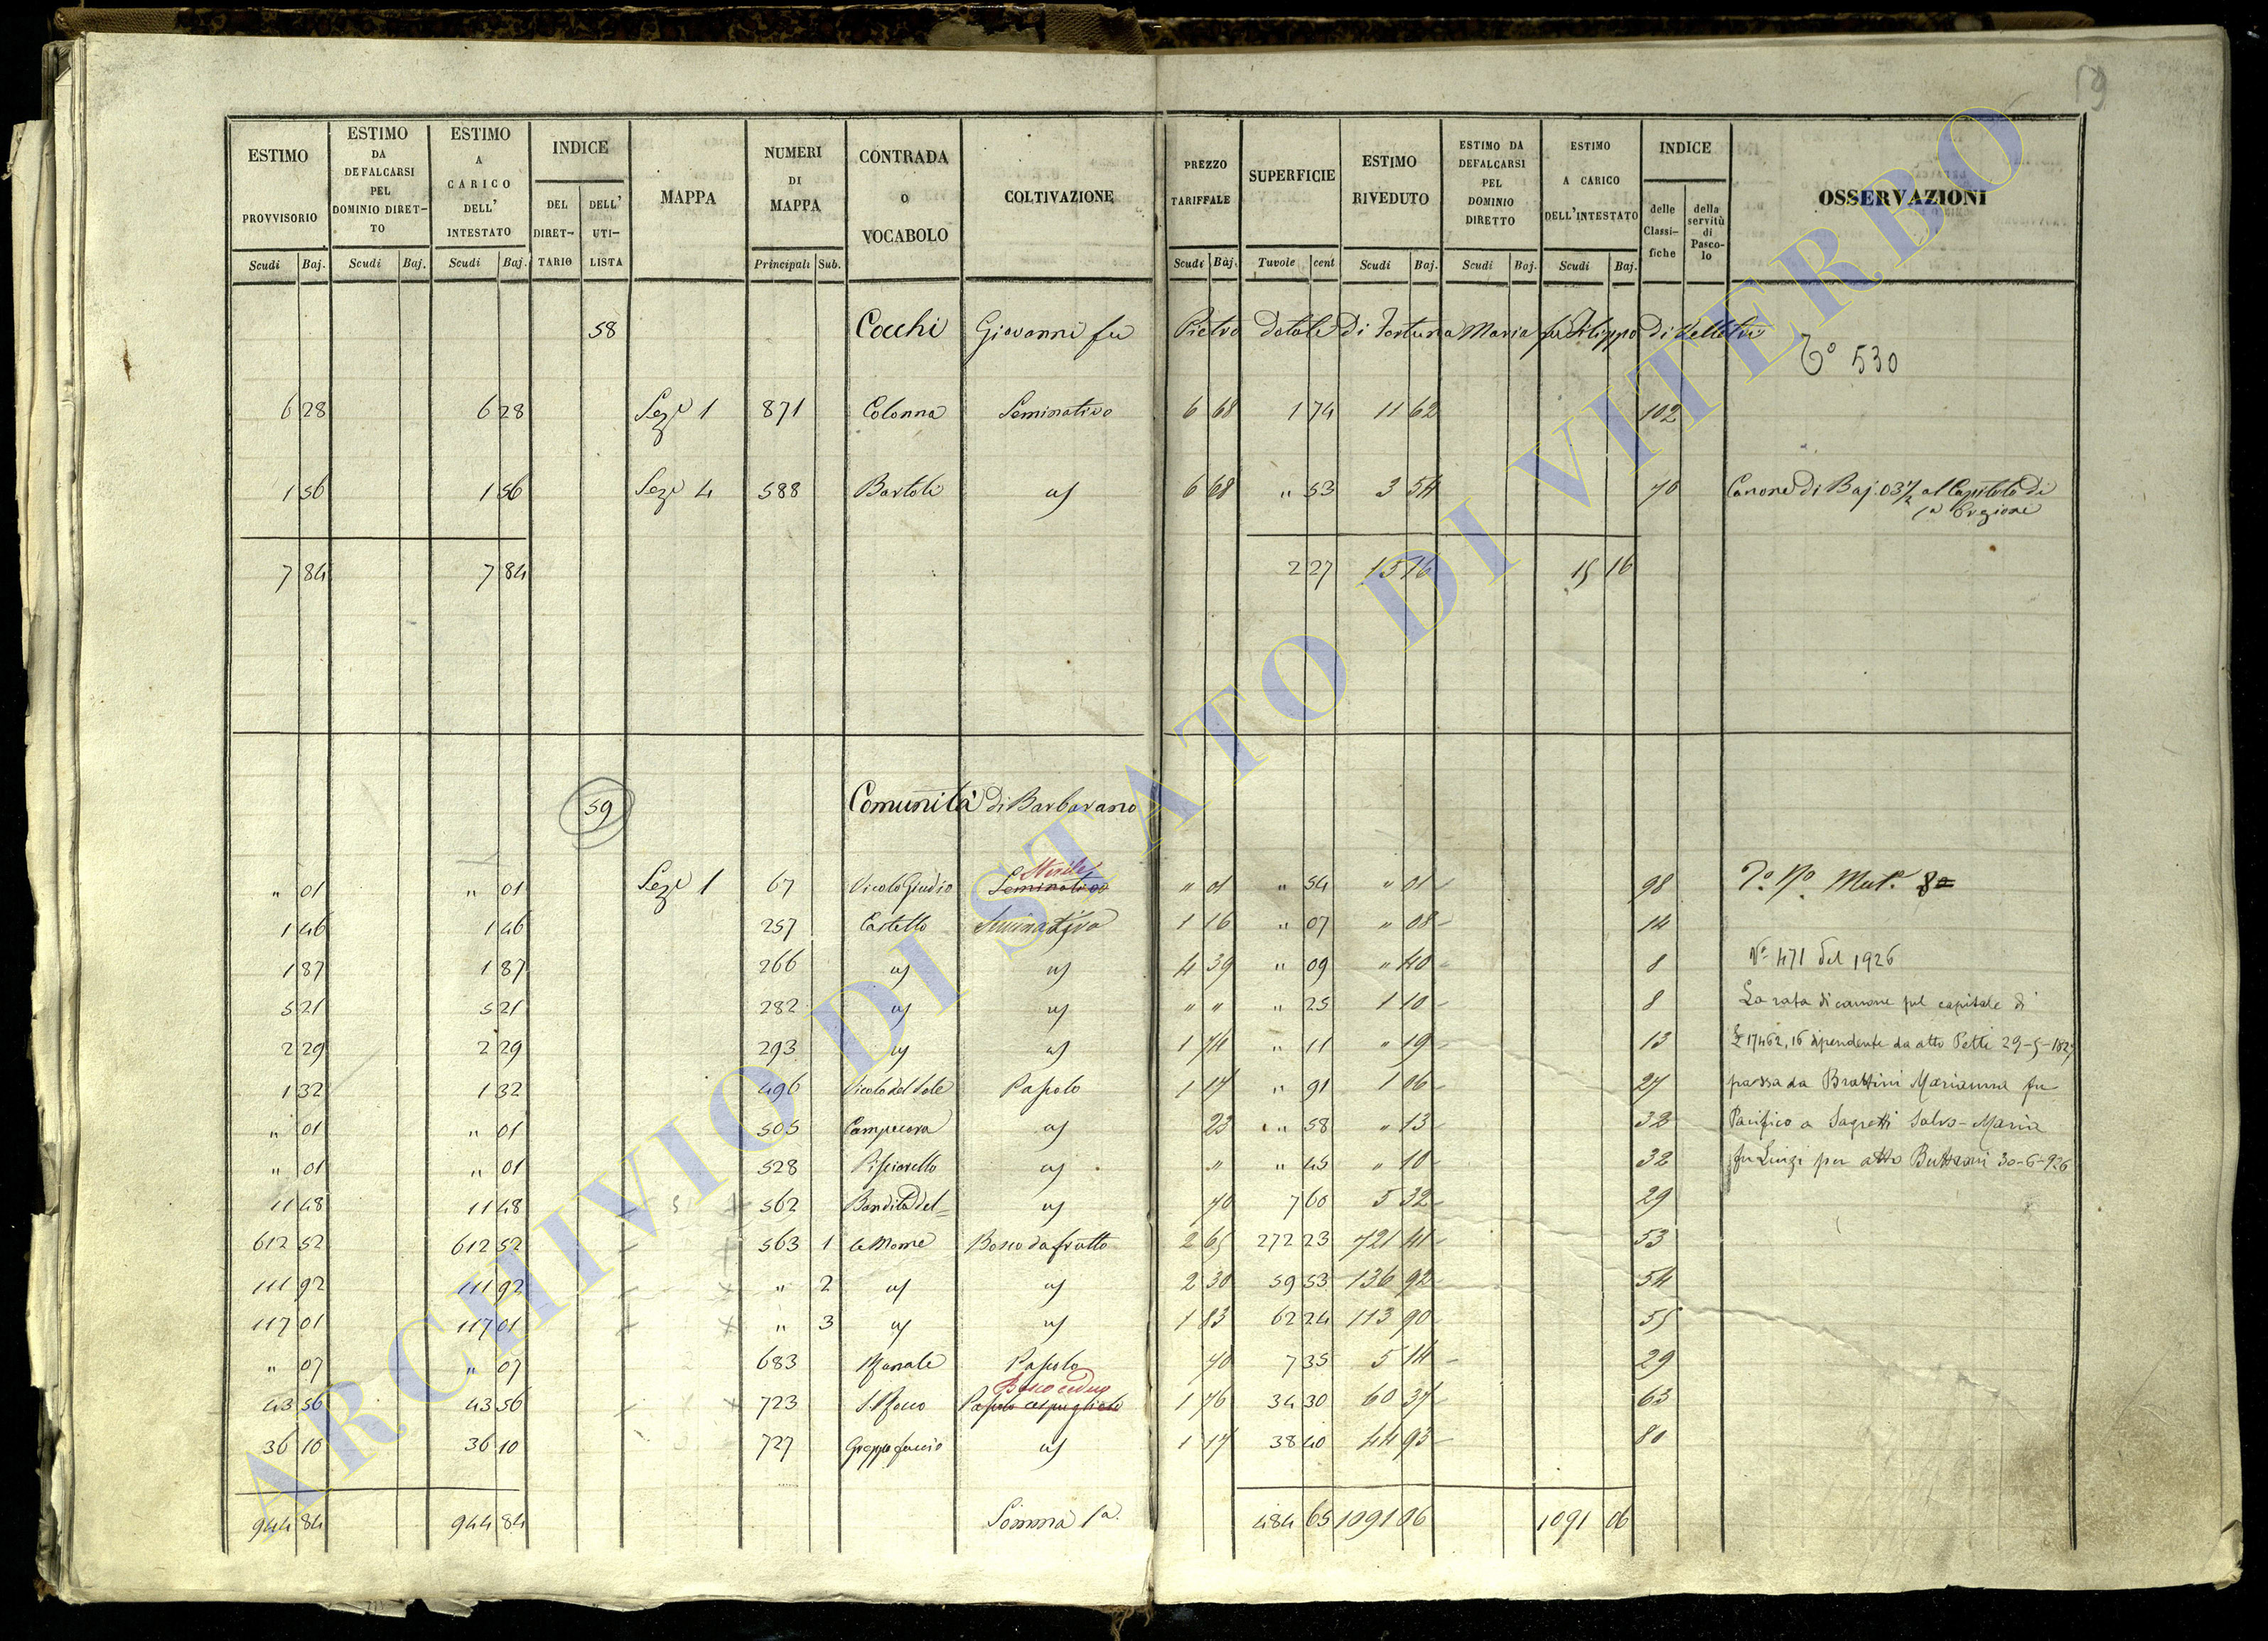 19
ESTIMO PROVVISORIO Scudi Baj.
ESTIMO DA DEFALCARSI PEL DOMINIO DIRET-TO Scudi Baj.
ESTIMO A CARICO DELL' INTESTATO Scudi Baj.
INDICE DEL DIRET-TARIO DELL' UTI-LISTA
MAPPA
NUMERI DI MAPPA Principali Sub.
CONTRADA O VOCABOLO
COLTIVAZIONE
PREZZO TARIFFALE Scudi Baj.
SUPERFICIE Tavole cent
ESTIMO RIVEDUTO Scudi Baj.
ESTIMO DA DEFALCARSI PEL DOMINIO DIRETTO Scudi Baj.
ESTIMO A CARICO DELL'INTESTATO Scudi Baj.
INDICE delle Classi-fiche della servitù di Pasco-lo
OSSERVAZIONI
58 Cocchi Giovanni fu Pietro dotale di Fortuna Maria fu Filippo di Velletri
530
6 28 6 28 Sez. 1 871 Colonna Seminativo 6 68 1 74 11 62 102
1 56 1 56 Sez. 4 588 Bartoli 6 68 " 53 3 54 70 Canone di Baj. 03 1/2 al Capitolo di
7 84 7 84 2 27 15 16 15 16
59 Comunità di Barbarano
" 01 " 01 Sez. 1 67 Vicolo Giudio Seminativo Sterile " 01 " 54 " 01 98
1 46 1 46 257 Castello Seminativo 1 16 " 07 " 08 14
1 87 1 87 266 4 39 " 09 " 40 8 N° 471 del 1926
5 21 5 21 282 " " " 25 1 10 8 La rata di canone sul capitale di
2 29 2 29 293 1 74 " 11 " 19 13 £ 17462,16 dipendente da atto Petti
1 32 1 32 496 Pascolo 1 17 " 91 1 06 27 passa da Brattini Marianna fu
" 01 " 01 505 23 " 58 " 13 32 Pacifico a Sagretti Salvo-Maria
" 01 " 01 528 Pisciarello " " 45 " 10 32 fu Luigi per atto 30-6-926
11 48 11 48 562 Bandita del= 70 7 60 5 32 29
612 52 612 52 563 1 le Mome Bosco da frutto 2 65 272 23 721 41 53
111 92 111 92 " 2 2 30 59 53 136 92 54
117 01 117 01 " 3 1 83 62 24 113 90 55
" 07 " 07 683 Pascolo 70 7 35 5 14 29
43 56 43 56 723 S. Rocco Pascolo cespugliato Bosco ceduo 1 76 34 30 60 37 63
36 10 36 10 727 1 17 38 40 44 93 80
944 84 944 84 Somma 1a. 484 65 1091 06 1091 06
ARCHIVIO DI STATO DI VITERBO